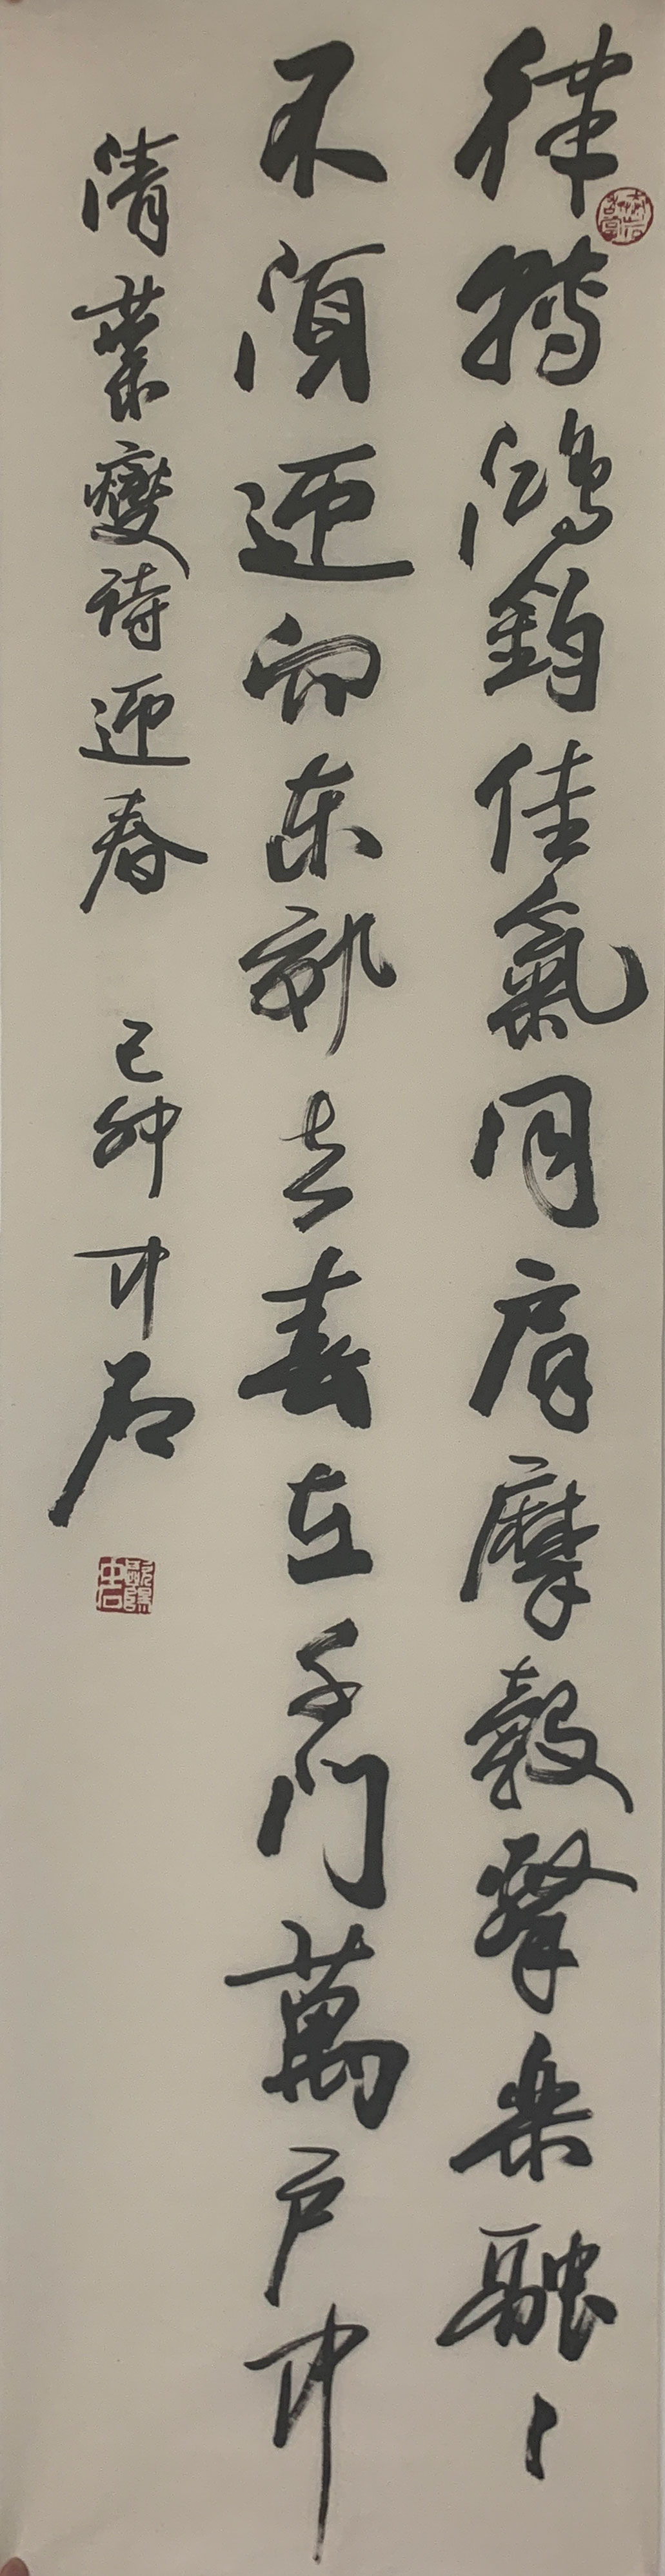 律轉鴻鈞佳氣同肩摩轂擊樂融〻
不須迎向東郊去春在千門萬戶中
清業燮詩迎春 己卯中石
歐陽中石